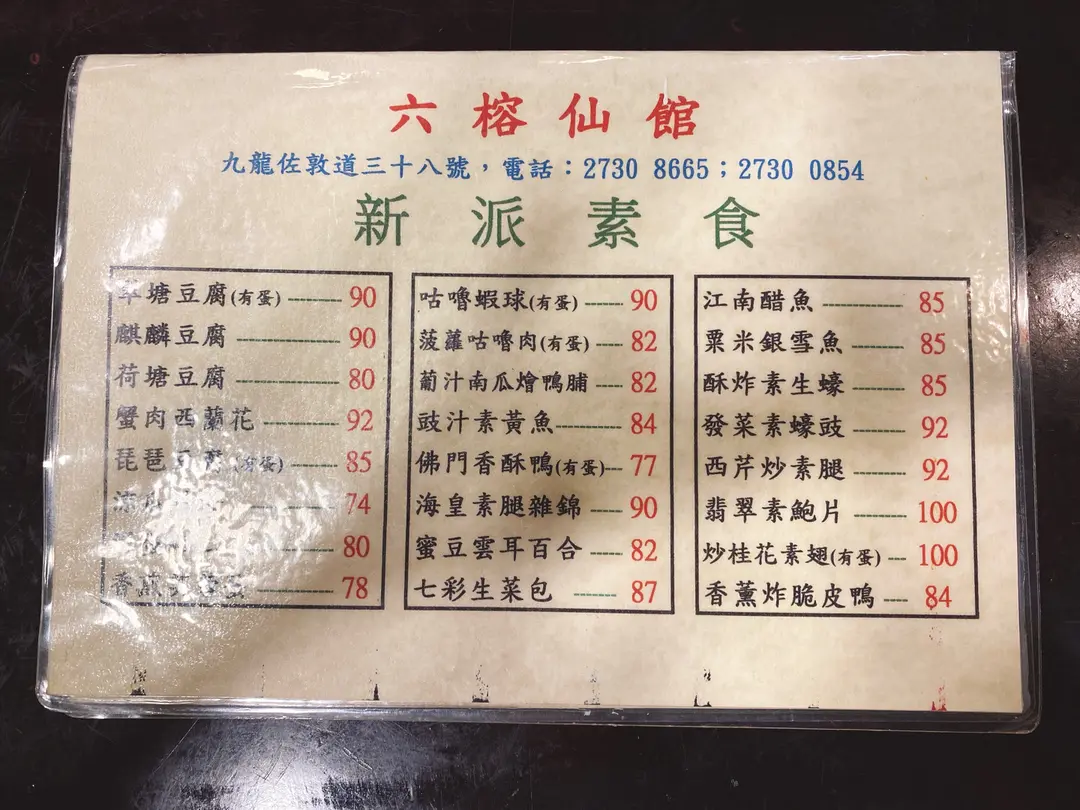 六榕仙館
九龍佐敦道三十八號，電話：2730 8665；2730 0854
新派素食
塘豆腐(有蛋) 90
麒麟豆腐 90
荷塘豆腐 80
蟹肉西蘭花 92
琵琶豆腐(有蛋) 85
涼瓜 74
80
香 78
咕嚕蝦球(有蛋) 90
菠蘿咕嚕肉(有蛋) 82
葡汁南瓜燴鴨脯 82
豉汁素黃魚 84
佛門香酥鴨(有蛋) 77
海皇素腿雜錦 90
蜜豆雲耳百合 82
七彩生菜包 87
江南醋魚 85
粟米銀雪魚 85
酥炸素生蠔 85
發菜素蠔豉 92
西芹炒素腿 92
翡翠素鮑片 100
炒桂花素翅(有蛋) 100
香薰炸脆皮鴨 84